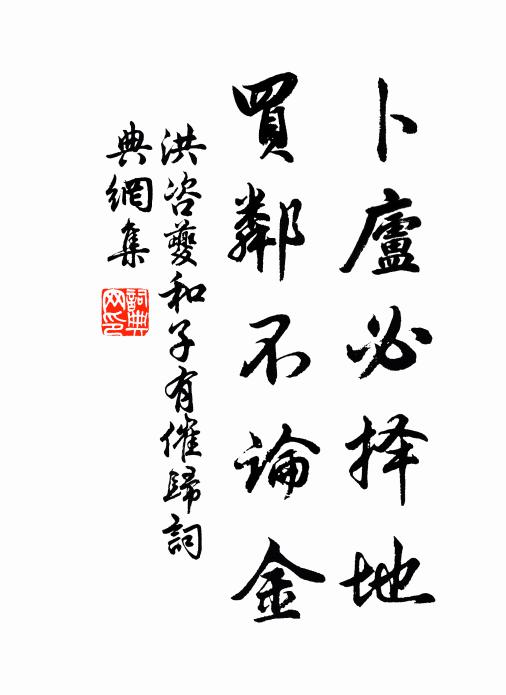 卜廬必择地
買鄰不論金
洪咨夔和子有催歸詞
典網集
詞典網印